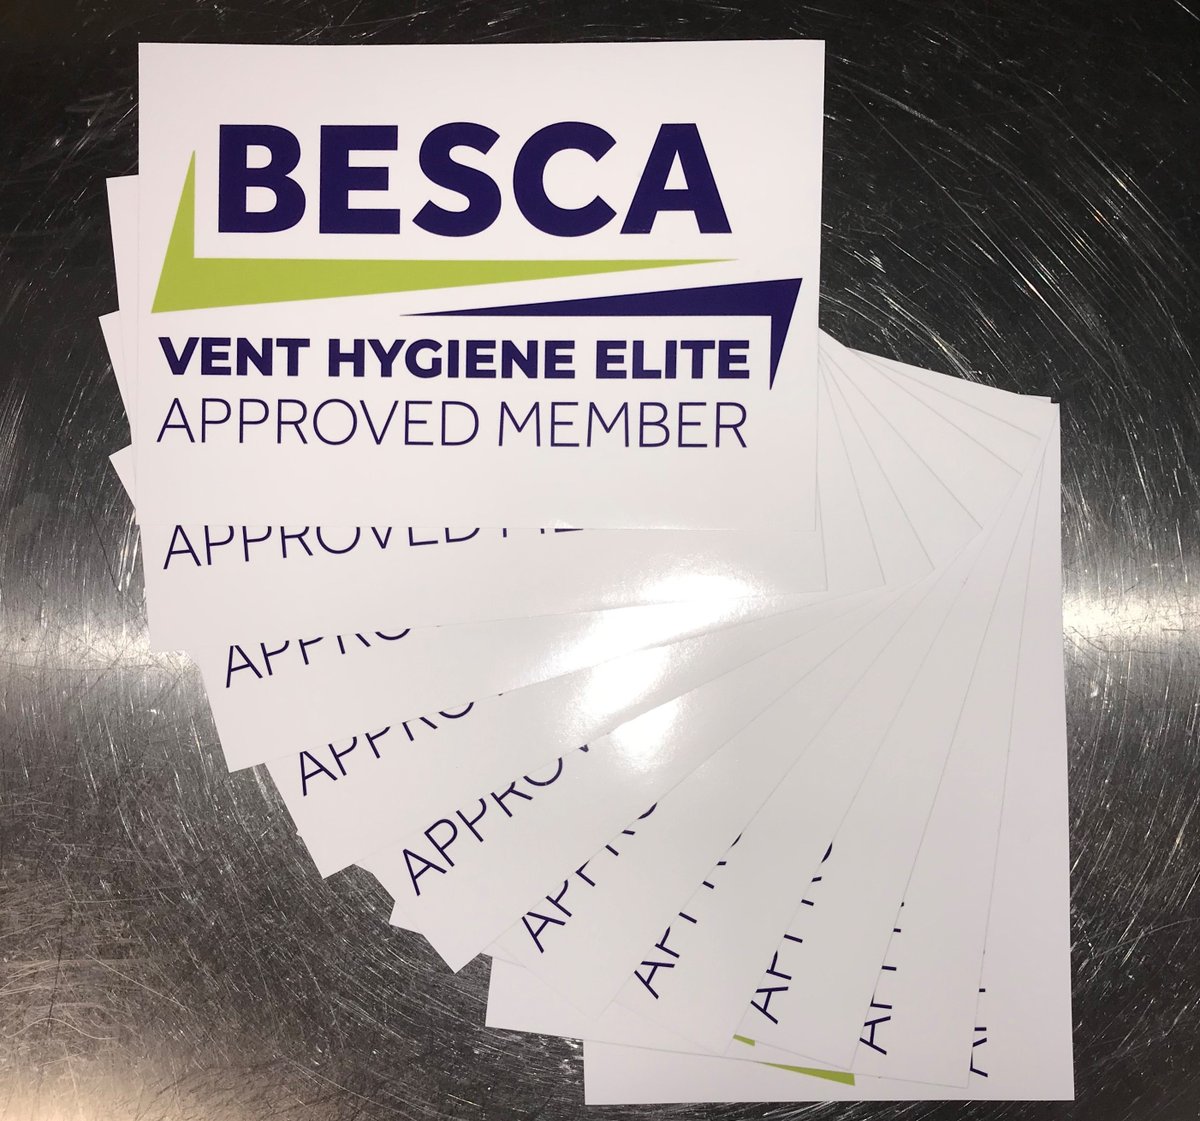 BESCA
VENT HYGIENE ELITE
APPROVED MEMBER
APPROVED ME
APPRO
APPRO
APPROV
APPRO
APPRO
APPR
APP
AP